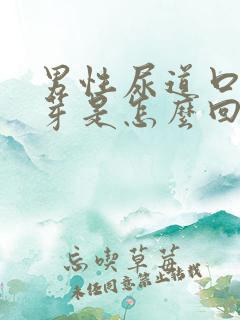 男性尿道口
芽是怎麼回
忘喫草莓
未经同意禁止转载